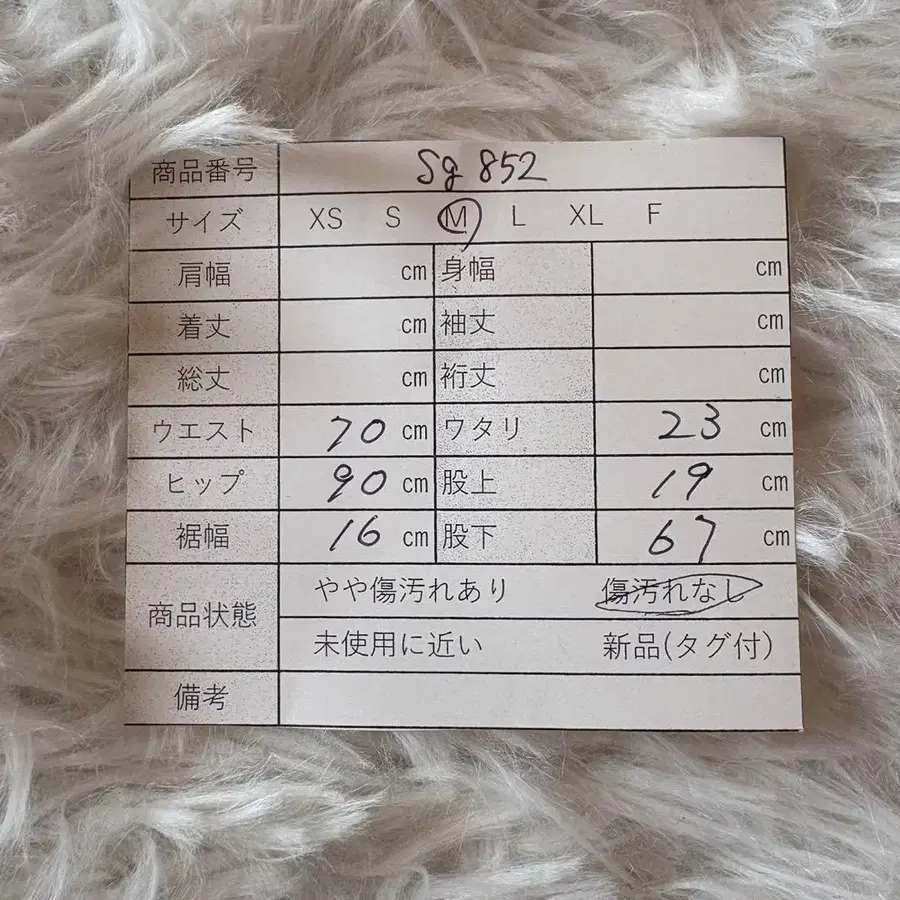 商品番号 Sg 852
サイズ XS S M L XL F
肩幅 cm 身幅 cm
着丈 cm 袖丈 cm
総丈 cm 裄丈 cm
ウエスト 70 cm ワタリ 23 cm
ヒップ 90 cm 股上 19 cm
裾幅 16 cm 股下 67 cm
商品状態 やや傷汚れあり 傷汚れなし
未使用に近い 新品(タグ付)
備考